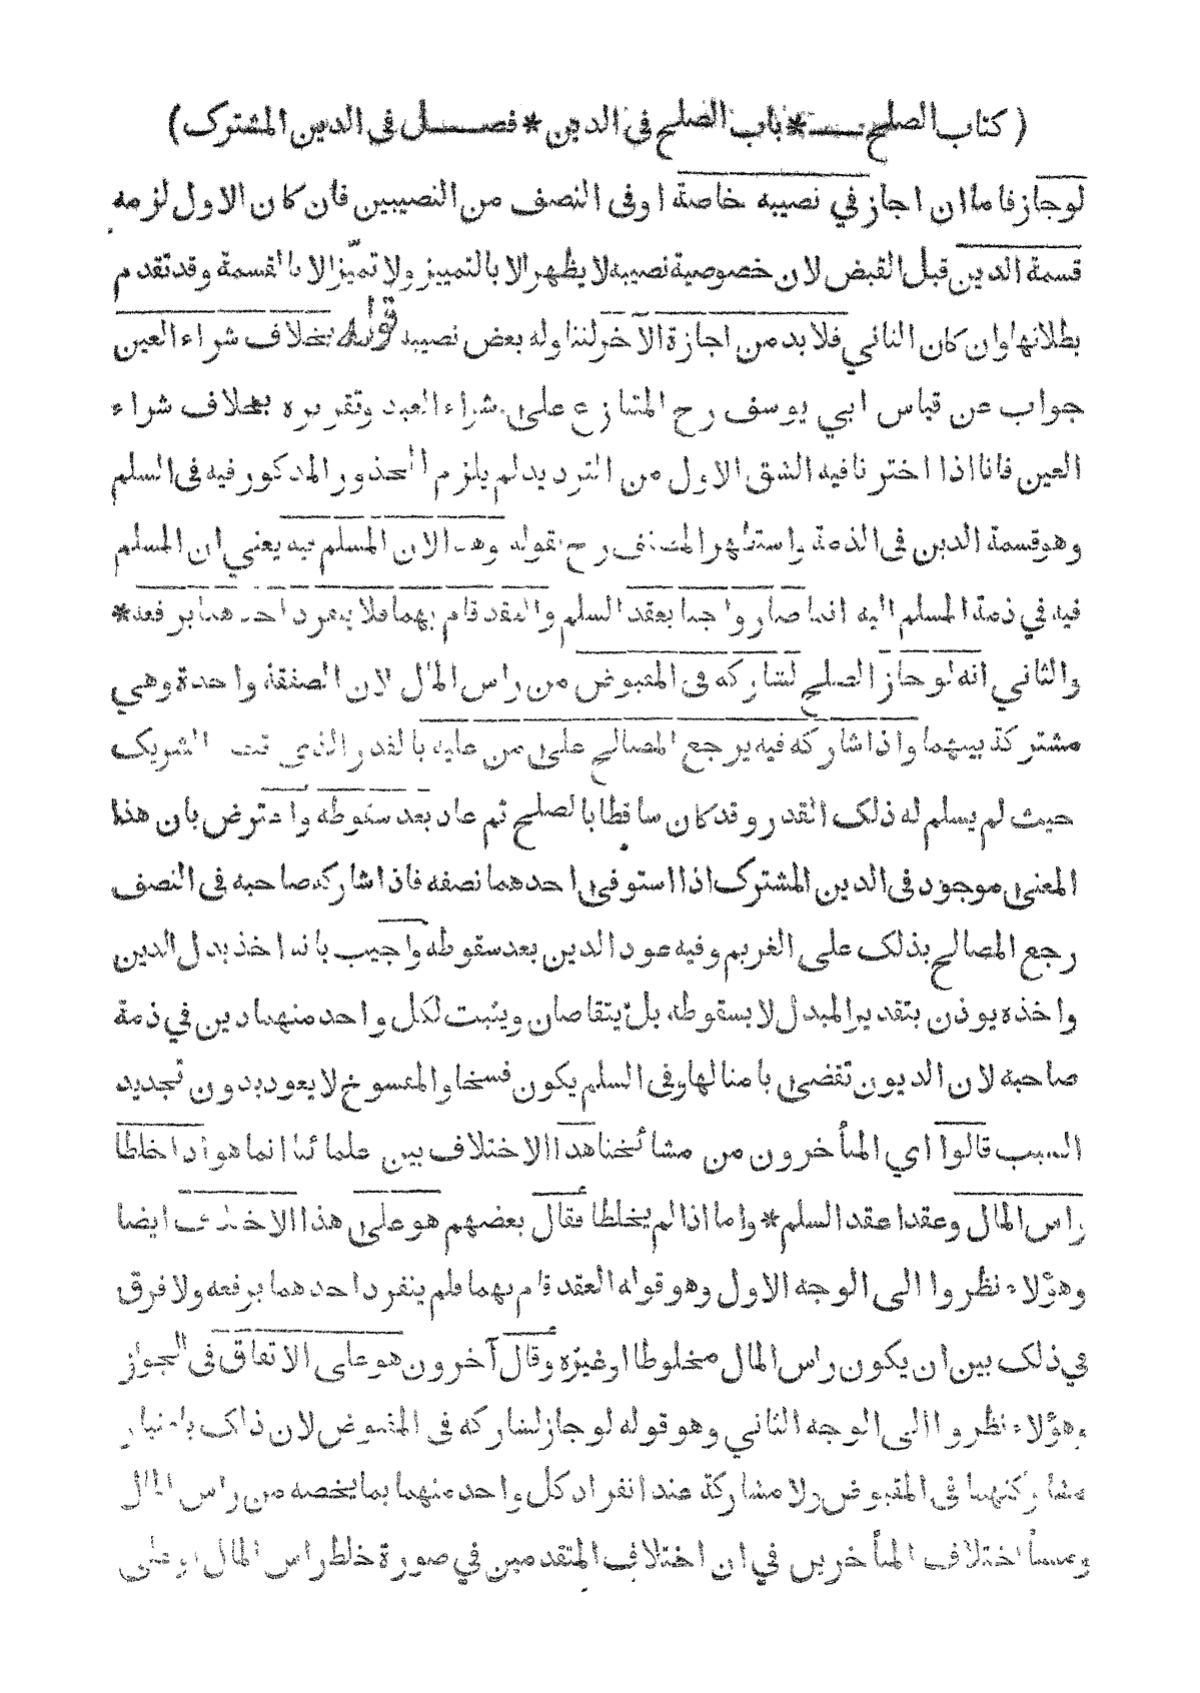 ( كتاب الصلح * باب الصلح فى الدين * فصل فى الدين المشترك )
لوجاز فاما ان اجاز في نصيبه خاصة اوفى النصف من النصيبين فان كان الاول لزمه
قسمة الدين قبل القبض لان خصوصية نصيبه لا يظهر الا بالتمييز ولا تميز الا بالقسمة وقد تقدم
بطلانها وان كان الثاني فلا بد من اجازة الآخر لتناوله بعض نصيبه قوله بخلاف شراء العين
جواب عن قياس ابي يوسف رح المتنازع على شراء العبد وتقريره بخلاف شراء
العين فانا اذا اخترنا فيه الشق الاول من الترديد لم يلزم المحذور المذكور فيه فى السلم
وهو قسمة الدين فى الذمة واستظهر المصنف رح بقوله وهذا لان المسلم فيه يعني ان المسلم
فيه في ذمة المسلم اليه انما صار واجبا بعقد السلم والعقد قام بهما فلا ينفرد احدهما برفعه *
والثاني انه لو جاز الصلح لشاركه فى المقبوض من راس المال لان الصفقة واحدة وهي
مشتركة بينهما واذا شاركه فيه يرجع المصالح على من عليه بالقدر الذي قبض الشريك
حيث لم يسلم له ذلك القدر وقد كان ساقطا بالصلح ثم عاد بعد سقوطه واعترض بان هذا
المعنى موجود فى الدين المشترك اذا استوفى احدهما نصفه فاذا شاركه صاحبه فى النصف
رجع المصالح بذلك على الغريم وفيه عود الدين بعد سقوطه واجيب بانه اخذ بدل الدين
واخذه يوذن بتقدير المبدل لا بسقوطه بل يتقاصان ويثبت لكل واحد منهما دين في ذمة
صاحبه لان الديون تقضى بامثالها وفى السلم يكون فسخا والمفسوخ لا يعود بدون تجديد
السبب قالوا اي المتأخرون من مشائخنا هذا الاختلاف بين علمائنا انما هو اذا خلطا
راس المال وعقدا عقد السلم * واما اذا لم يخلطا فقال بعضهم هو على هذا الاختلاف ايضا
وهؤلاء نظروا الى الوجه الاول وهو قوله العقد قام بهما فلم ينفرد احدهما برفعه ولا فرق
في ذلك بين ان يكون راس المال مخلوطا او غيره وقال آخرون هو على الاتفاق فى الجواز
وهؤلاء نظروا الى الوجه الثاني وهو قوله لو جاز لشاركه فى المقبوض لان ذلك باعتبار
مشاركتهما فى المقبوض ولا مشاركة عند انفراد كل واحد منهما بما يخصه من راس المال
ومنشأ اختلاف المتأخرين في ان اختلاف المتقدمين في صورة خلط راس المال او على